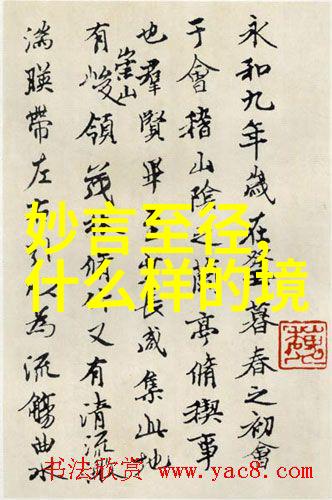 永和九年歲在癸丑暮春之初會
于會稽山陰之蘭亭脩稧事
也羣賢畢至少長咸集此地
有崇山峻領茂林脩竹又有清流激
湍暎帶左右引以為流觴曲水
妙言至径,
什么样的境
书法欣赏 www.yac8.com